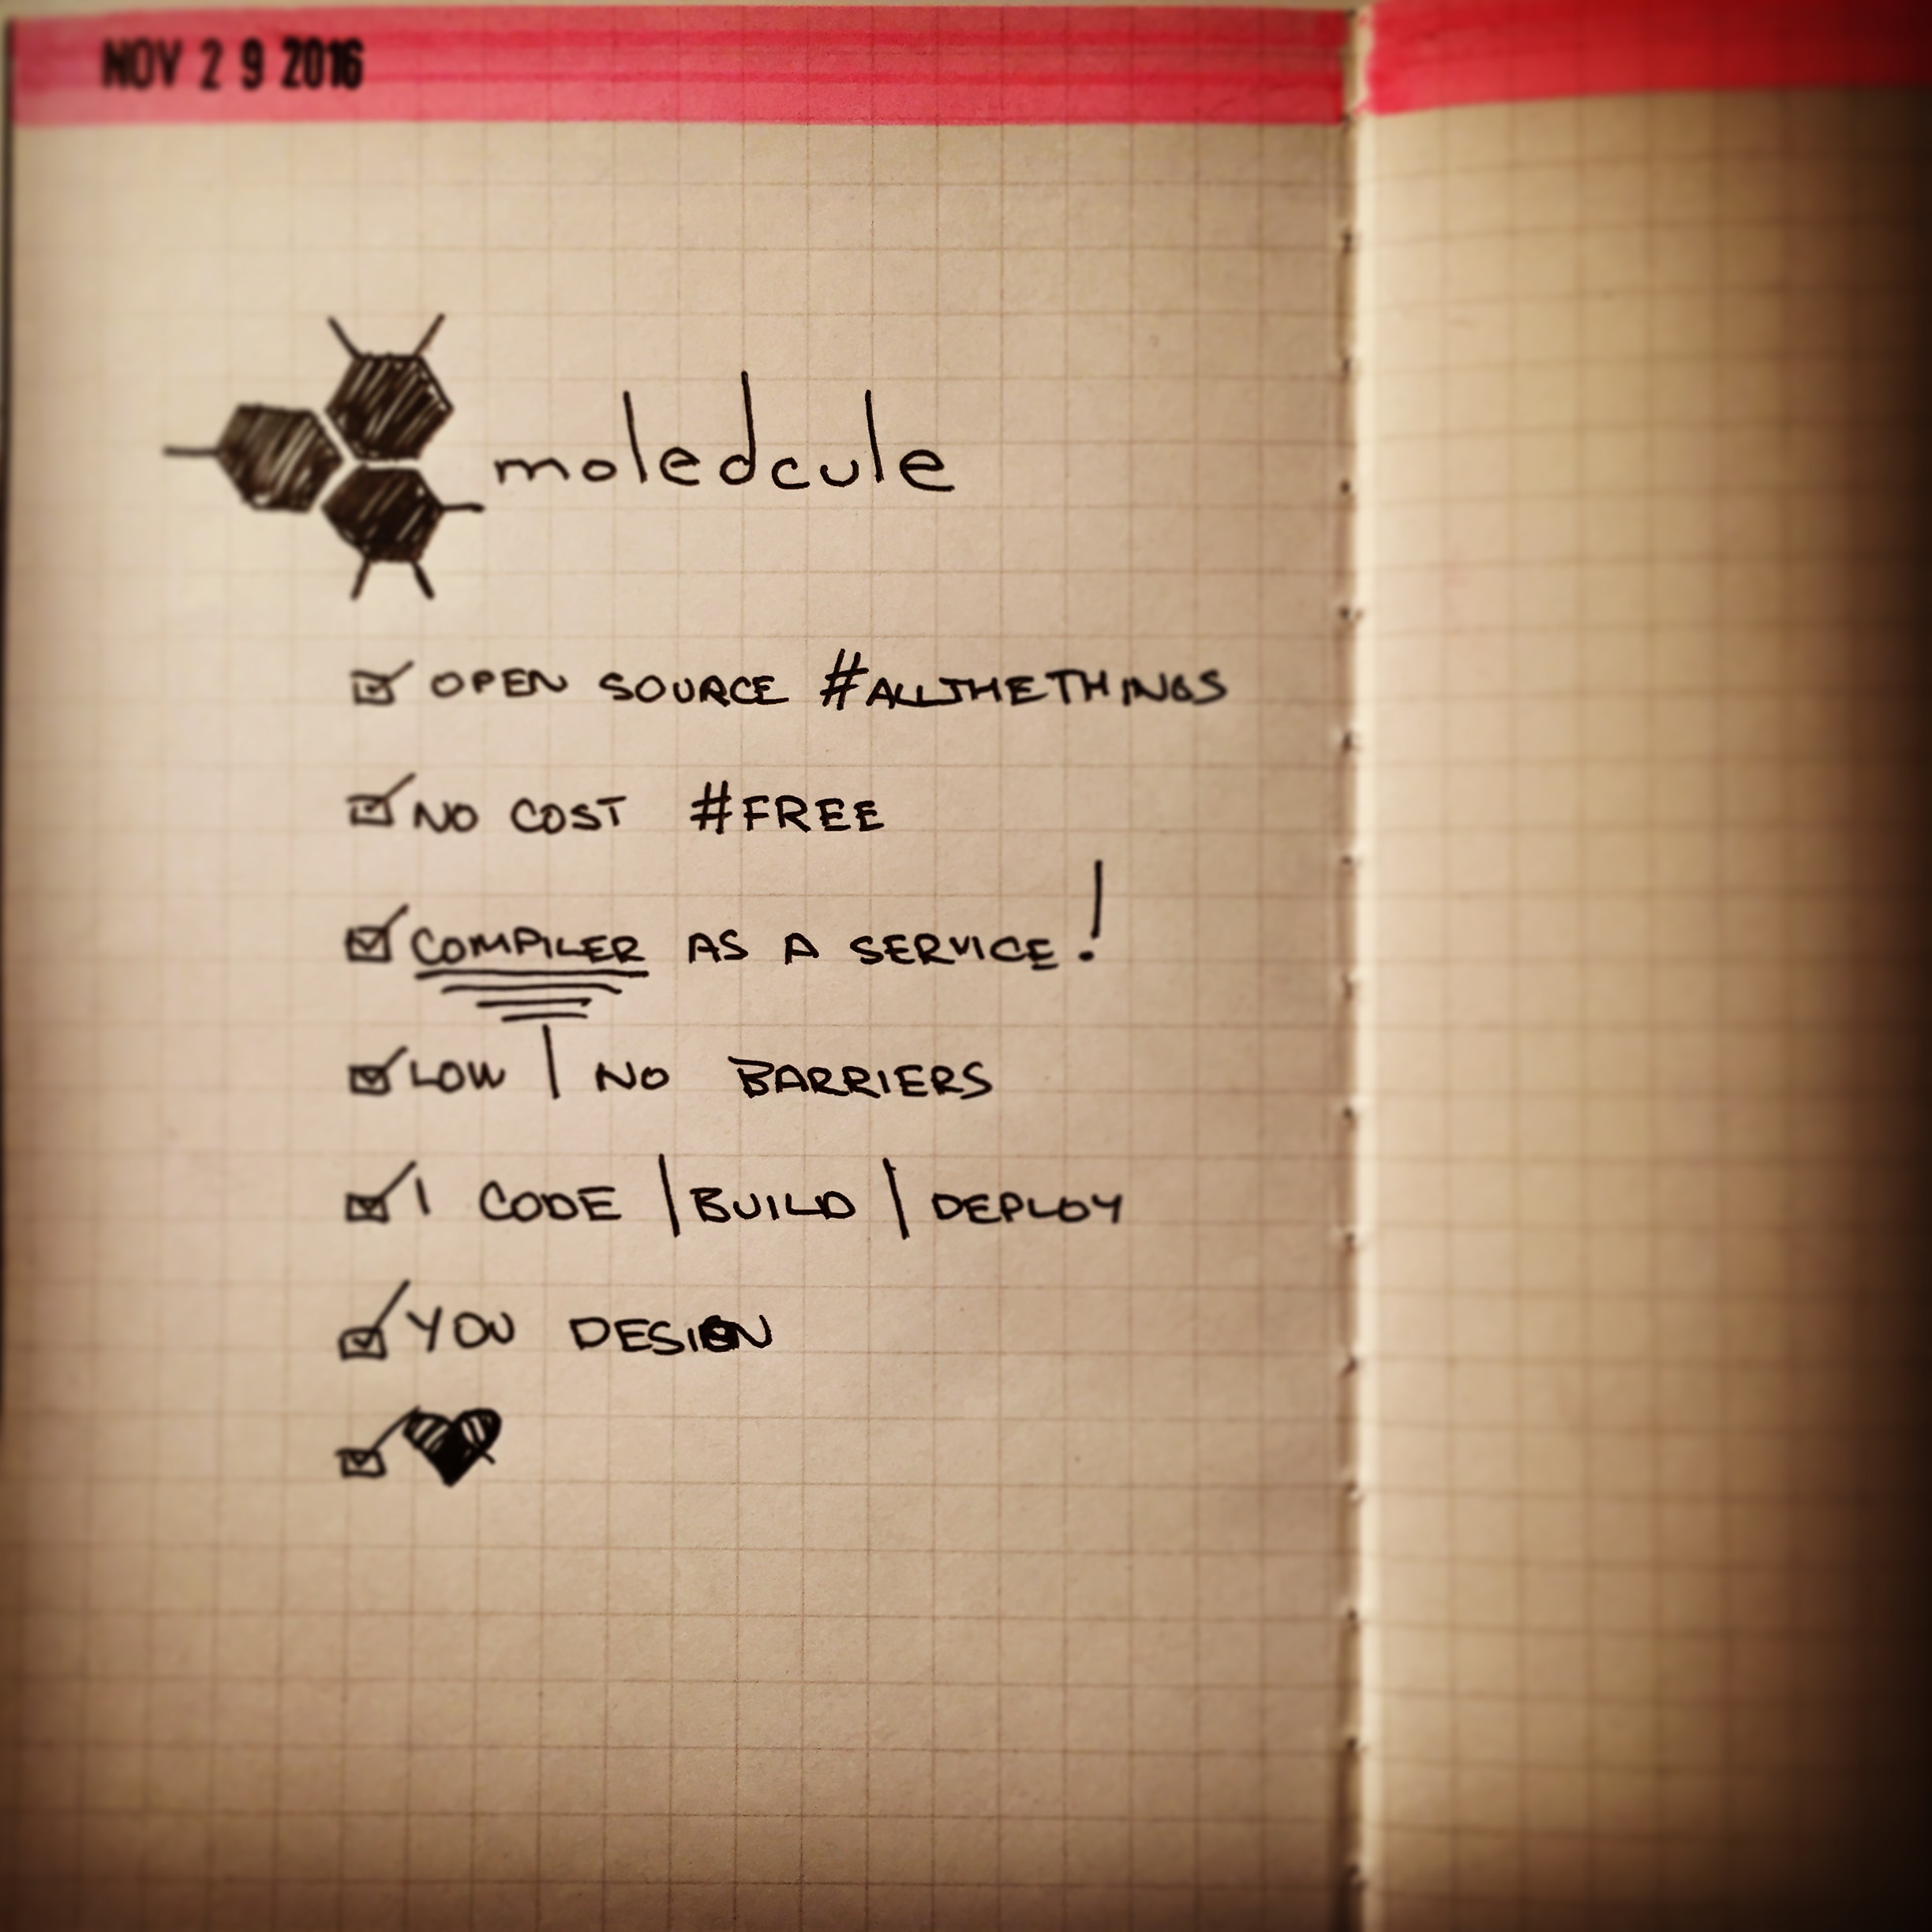 NOV 29 2016
moledcule
OPEN SOURCE #ALLTHETHINGS
NO COST #FREE
COMPILER AS A SERVICE!
LOW | NO BARRIERS
I CODE | BUILD | DEPLOY
YOU DESIGN